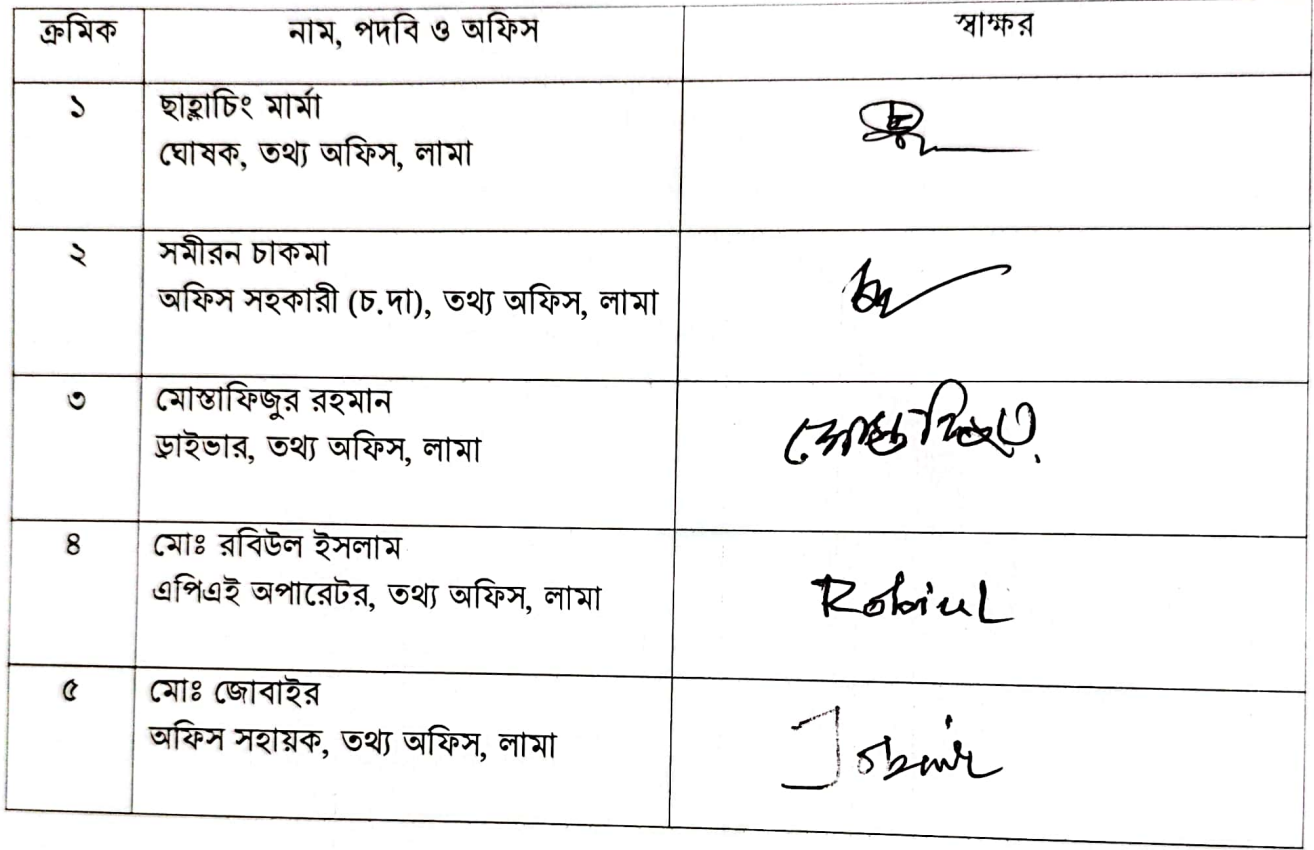 ক্রমিক নাম, পদবি ও অফিস স্বাক্ষর
১ ছাহ্লাচিং মার্মা
ঘোষক, তথ্য অফিস, লামা
২ সমীরন চাকমা
অফিস সহকারী (চ.দা), তথ্য অফিস, লামা
৩ মোস্তাফিজুর রহমান
ড্রাইভার, তথ্য অফিস, লামা
মোস্তাফিজুর
৪ মোঃ রবিউল ইসলাম
এপিএই অপারেটর, তথ্য অফিস, লামা
Robiul
৫ মোঃ জোবাইর
অফিস সহায়ক, তথ্য অফিস, লামা
Jobair